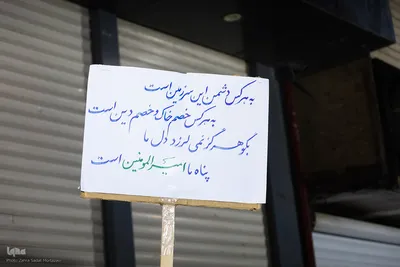 به هر کس دشمن این سرزمین است
به هر کس خصم خاک و خصم دین است
بگو هرگز نمی لرزد دل ما
پناه ما امیرالمومنین است